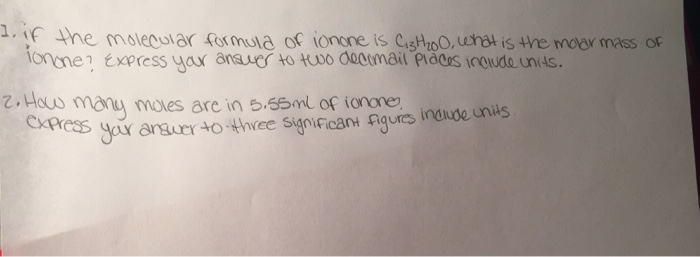 1. if the molecular formula of ionone is C₁₃H₂₀O, what is the molar mass of
ionone? Express your answer to two decimail places include units.
2. How many moles are in 5.55ml of ionone.
express your answer to three significant figures include units